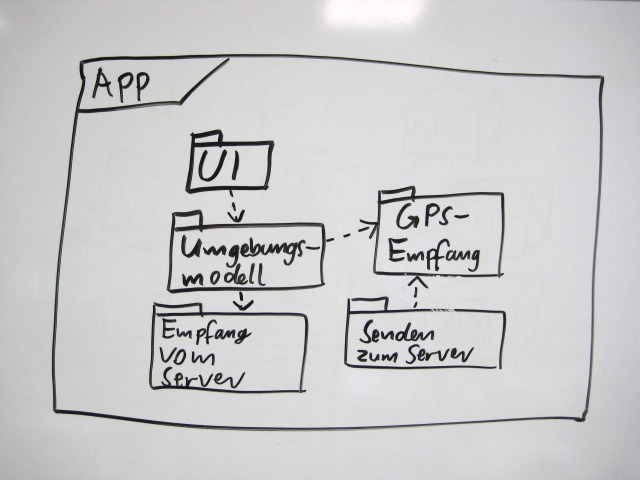 App
UI
Umgebungs-
modell
GPS-
Empfang
Empfang
vom
Server
Senden
zum Server